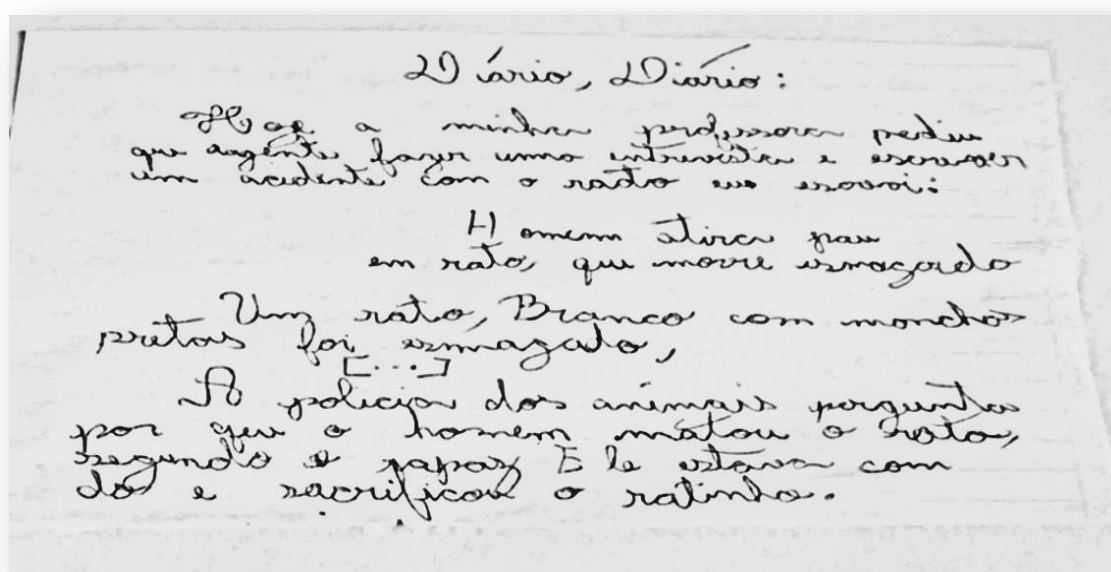 Diário, Diário:
Hoge a minha professora pediu
que augente fazer uma entrevista e escrever
um acidente com o rato eu escrevi:
Homem atira pau
em rato, que morre esmagado
Um rato, Branco com monchas
pretas foi esmagalo,
[...]
A policia dos animais pergunta
por qeu o homem matou o rato,
segundo o rapaz Ele estava com
do e sacrificou o ratinho.